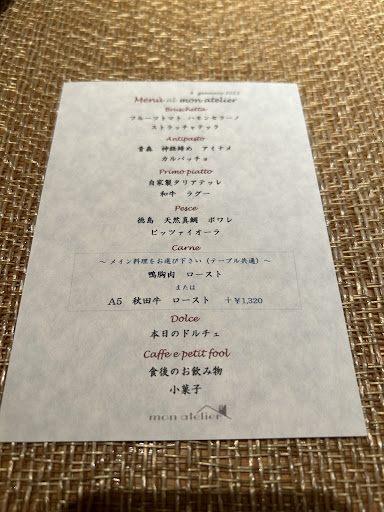 Menù al mon atelier
Bruschetta
フルーツトマト ハモンセラーノ
ストラッチャテッラ
Antipasto
青森 神経締め アイナメ
カルパッチョ
Primo piatto
自家製タリアテッレ
和牛 ラグー
Pesce
徳島 天然真鯛 ポワレ
ピッツァイオーラ
Carne
～ メイン料理をお選び下さい（テーブル共通）～
鴨胸肉 ロースト
または
A5 秋田牛 ロースト ＋￥1,320
Dolce
本日のドルチェ
Caffe e petit fool
食後のお飲み物
小菓子
mon atelier